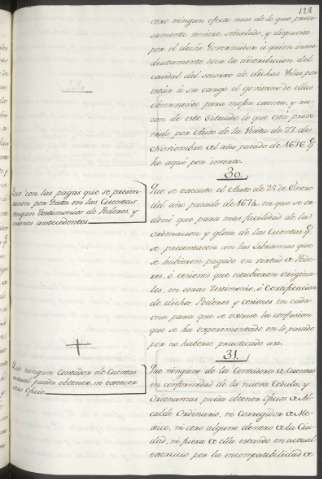 128
otro ningun efecto mas de lo que preci-
samente tuviese señalado, y dispuesto
por el dicho Governador á quien inme-
diatamente toca la distribucion del
caudal del socorro de dichas Islas por
estár á su cargo el govierno de ellas
observandose para mejor cuenta, y ra-
zon de este Estanco lo que está preve-
nido por Auto de la Visita de 27 de
Noviembre del año pasado de 1636 q.
he aqui por inserto.
30.
Que con las pagas que se presen-
tasen por Data en las Cuentas
vengan Testimonios de Poderes, y
otros antecedentes
Que se execute el Auto de 25 de Enero
del año pasado de 1674 en que se or-
denó que para mas facilidad de la
ordenacion y glosa de las Cuentas q.
se presentaren con las Libranzas que
se hubieren pagado en virtud de Pode-
res, ó cesiones que estuvieren origina-
les, en otras Testimonio, ó Certificacion
de dichos Poderes y cesiones en cada
una para que se escuse la confusion
que se ha experimentado en lo pasado
por no haberse practicado asi.
31.
Que ningun Contador de Cuentas
actual pueda obtener, ni exercer
otro Oficio
Que ninguno de los Contadores de Cuentas
en conformidad de la nueva Cedula, y
Ordenanzas pueda obtener Oficio de Al-
calde Ordinario, ni Corregidor de Me-
xico, ni otro alguno dentro de la Ciu-
dad, ni fuera de ella estando en actual
exercicio por la incompatibilidad de